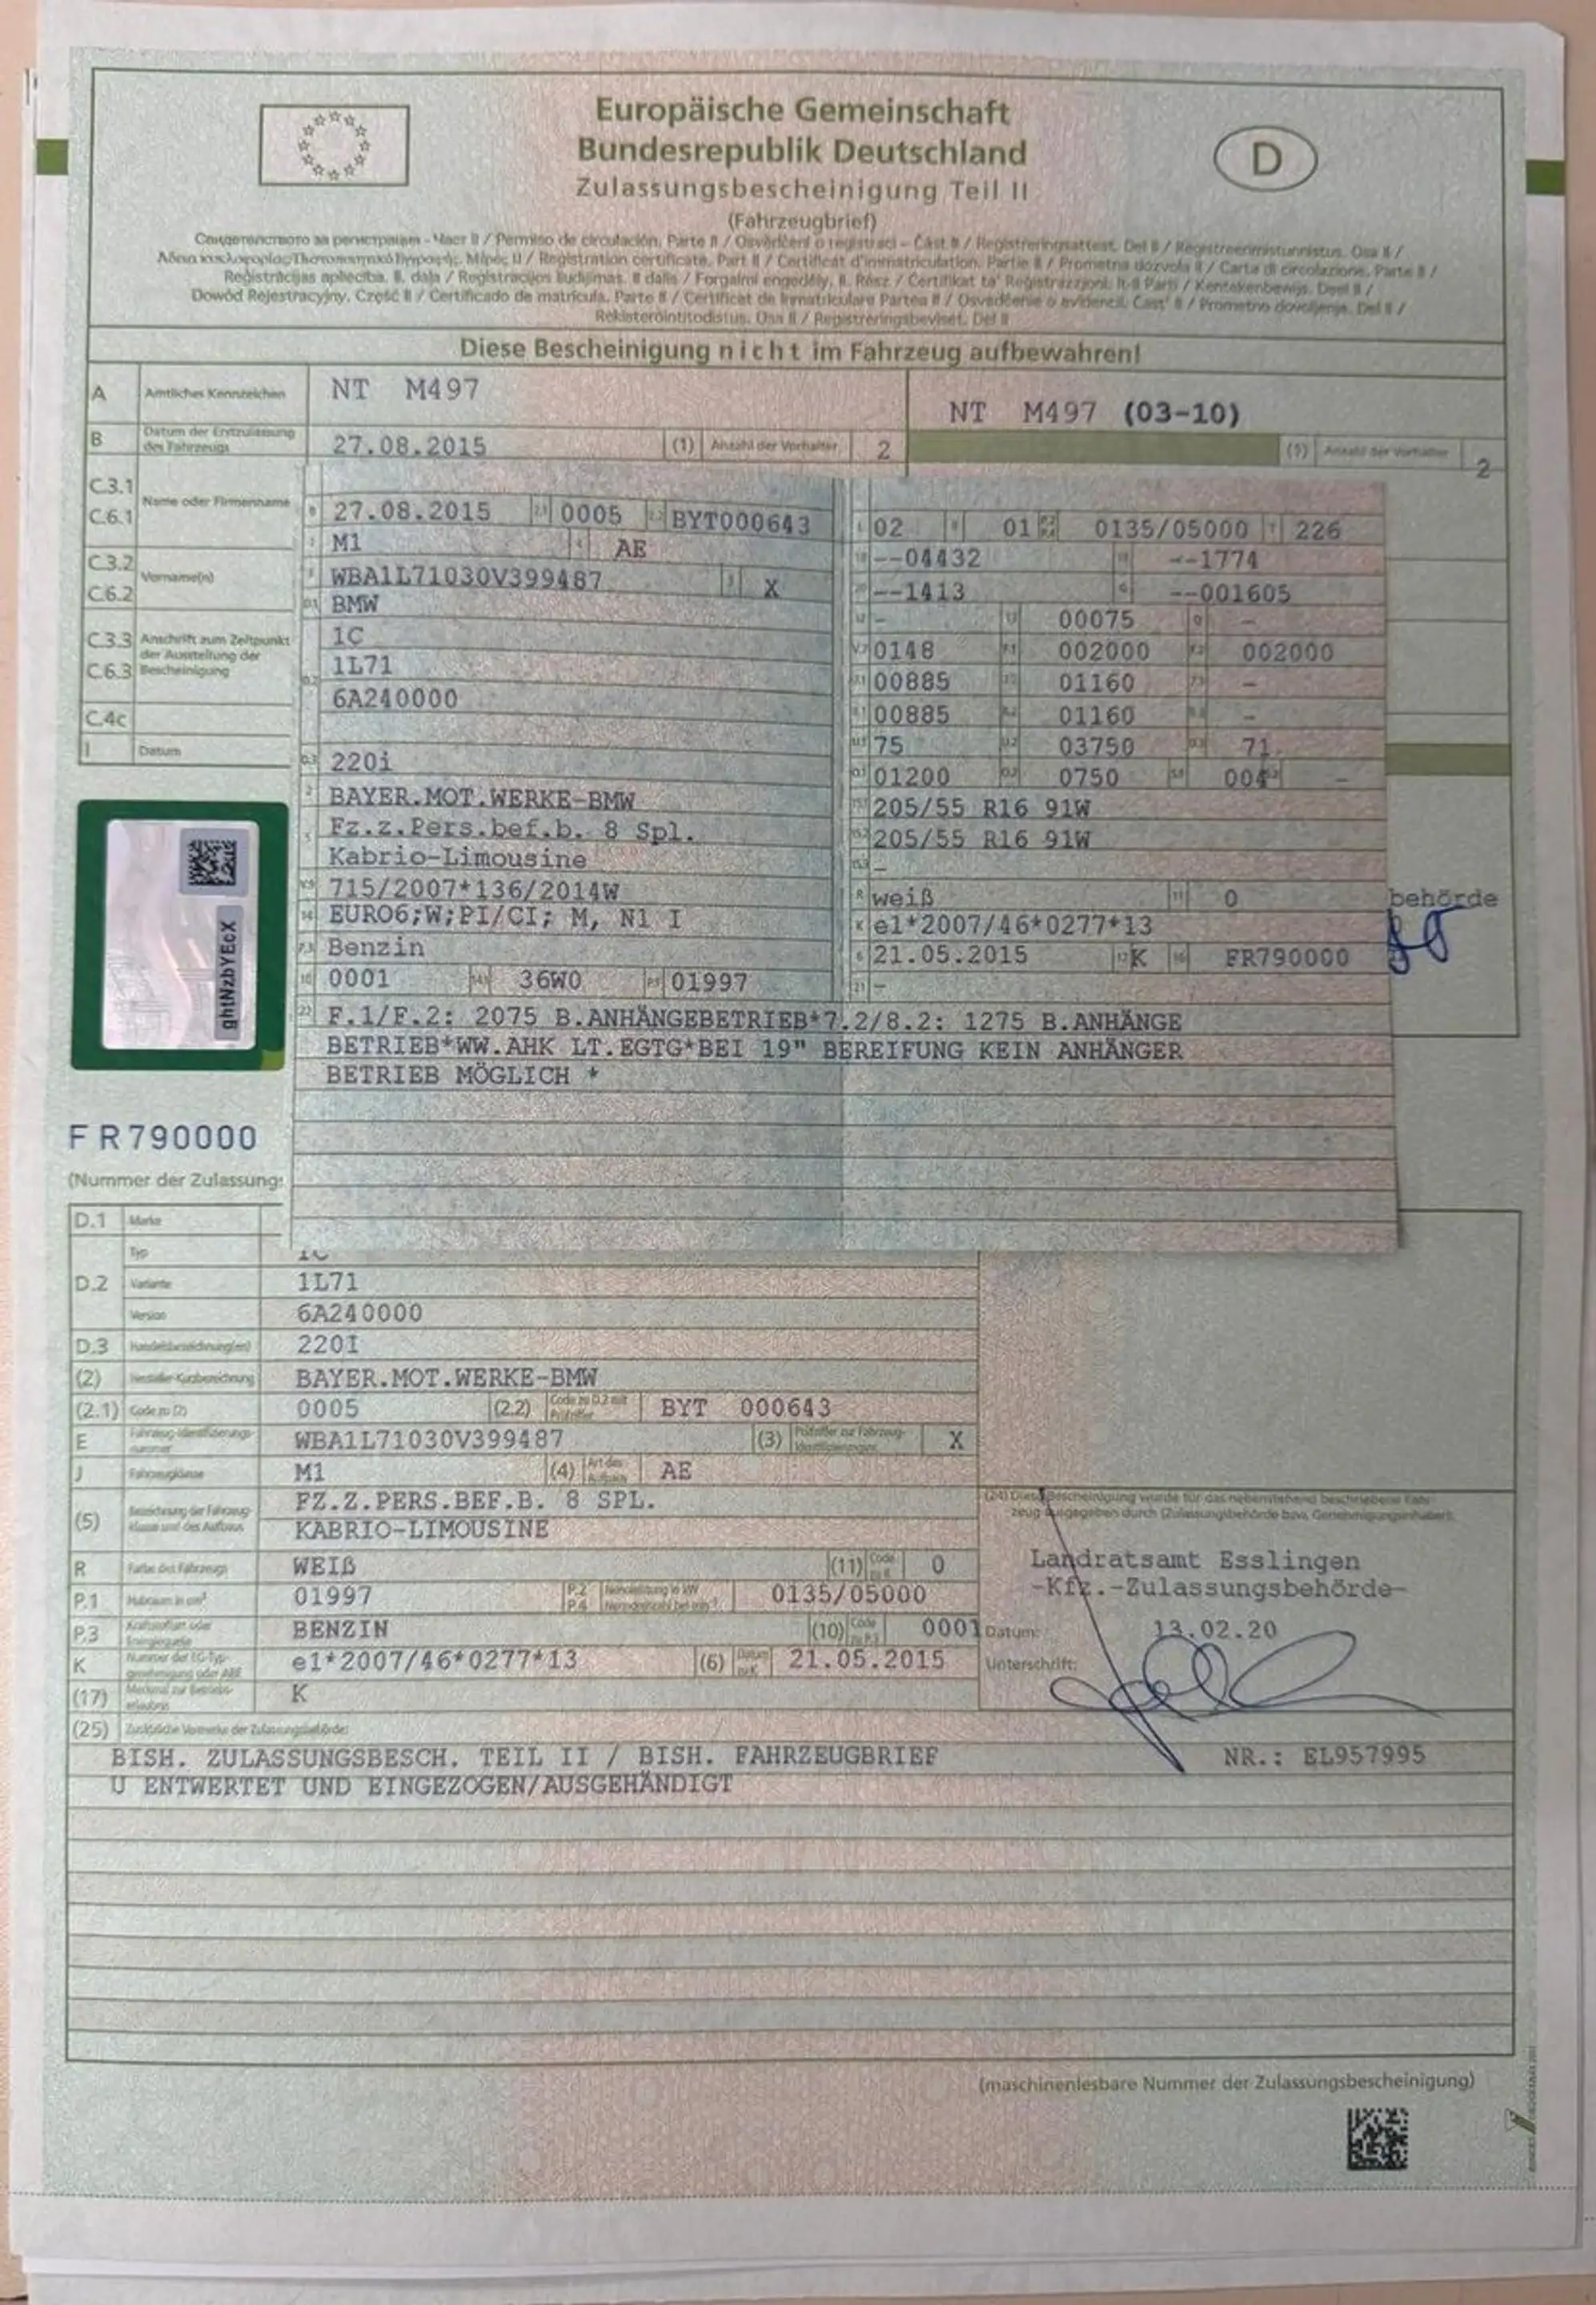 Europäische Gemeinschaft
Bundesrepublik Deutschland
D
Zulassungsbescheinigung Teil II
(Fahrzeugbrief)
Свидетелство за регистрация - Част II / Permiso de circulación. Parte II / Osvědčení o registraci - Část II / Registreringsattest. Del II / Registreerimistunnistus. Osa II /
Άδεια κυκλοφορίας/Πιστοποιητικό Εγγραφής. Μέρος II / Registration certificate. Part II / Certificat d'immatriculation. Partie II / Prometna dozvola II / Carta di circolazione. Parte II /
Reģistrācijas apliecība. II. daļa / Registracijos liudijimas. II dalis / Forgalmi engedély. II. Rész / Ċertifikat ta' Reġistrazzjoni. It-II Parti / Kentekenbewijs. Deel II /
Dowód Rejestracyjny. Część II / Certificado de matrícula. Parte II / Certificat de înmatriculare Partea II / Osvedčenie o evidencii. Časť II / Prometno dovoljenje. Del II /
Rekisteröintitodistus. Osa II / Registreringsbeviset. Del II
Diese Bescheinigung nicht im Fahrzeug aufbewahren!
A Amtliches Kennzeichen NT M497
NT M497 (03-10)
B Datum der Erstzulassung des Fahrzeugs 27.08.2015 (1) Anzahl der Vorhalter 2
(1) Anzahl der Vorhalter 2
C.3.1
C.6.1 Name oder Firmenname
C.3.2
C.6.2 Vorname(n)
C.3.3 Anschrift zum Zeitpunkt
der Ausstellung der
C.6.3 Bescheinigung
C.4c
I Datum
27.08.2015 2.1 0005 2.2 BYT000643
M1 4 AE
WBA1L71030V399487 3 X
D.1 BMW
1C
D.2 1L71
6A240000
D.3 220i
2 BAYER.MOT.WERKE-BMW
5 Fz.z.Pers.bef.b. 8 Spl.
Kabrio-Limousine
V.9 715/2007*136/2014W
14 EURO6;W;PI/CI; M, N1 I
P.3 Benzin
10 0001 14.1 36W0 P.1 01997
02 01 0135/05000 T 226
18 --04432 19 --1774
20 --1413 G --001605
12 - 13 00075 Q -
V.7 0148 F.1 002000 F.2 002000
7.1 00885 7.2 01160 7.3 -
8.1 00885 8.2 01160 8.3 -
U.1 75 U.2 03750 U.3 71
O.1 01200 O.2 0750 S.1 004 S.2 -
15.1 205/55 R16 91W
15.2 205/55 R16 91W
15.3 -
R weiß 11 0
K e1*2007/46*0277*13
6 21.05.2015 17 K 16 FR790000
21 -
22 F.1/F.2: 2075 B.ANHÄNGEBETRIEB*7.2/8.2: 1275 B.ANHÄNGE
BETRIEB*WW.AHK LT.EGTG*BEI 19" BEREIFUNG KEIN ANHÄNGER
BETRIEB MÖGLICH *
behörde
ghtNzbYEcX
FR790000
(Nummer der Zulassung
D.1 Marke
Typ 1C
D.2 Variante 1L71
Version 6A240000
D.3 Handelsbezeichnung(en) 220I
(2) Hersteller-Kurzbezeichnung BAYER.MOT.WERKE-BMW
(2.1) Code zu (2) 0005 (2.2) Code zu D.2 mit Prüfziffer BYT 000643
E Fahrzeug-Identifizierungsnummer WBA1L71030V399487 (3) Prüfziffer zur Fahrzeug-Identifizierungsnr. X
J Fahrzeugklasse M1 (4) Art des Aufbaus AE
(5) Bezeichnung der Fahrzeugklasse und des Aufbaus FZ.Z.PERS.BEF.B. 8 SPL.
KABRIO-LIMOUSINE
R Farbe des Fahrzeugs WEIß (11) Code zu R 0
P.1 Hubraum in cm³ 01997 P.2 P.4 Nennleistung in kW Nenndrehzahl bei min⁻¹ 0135/05000
P.3 Kraftstoffart oder Energiequelle BENZIN (10) Code zu P.3 0001
K Nummer der EG-Typgenehmigung oder ABE e1*2007/46*0277*13 (6) Datum zu K 21.05.2015
(17) Merkmal zur Betriebserlaubnis K
(24) Diese Bescheinigung wurde für das nebenstehend beschriebene Fahrzeug ausgegeben durch (Zulassungsbehörde bzw. Genehmigungsinhaber).
Landratsamt Esslingen
-Kfz.-Zulassungsbehörde-
Datum: 13.02.20
Unterschrift:
(25) Zusätzliche Vermerke der Zulassungsbehörde:
BISH. ZULASSUNGSBESCH. TEIL II / BISH. FAHRZEUGBRIEF NR.: EL957995
U ENTWERTET UND EINGEZOGEN/AUSGEHÄNDIGT
(maschinenlesbare Nummer der Zulassungsbescheinigung)